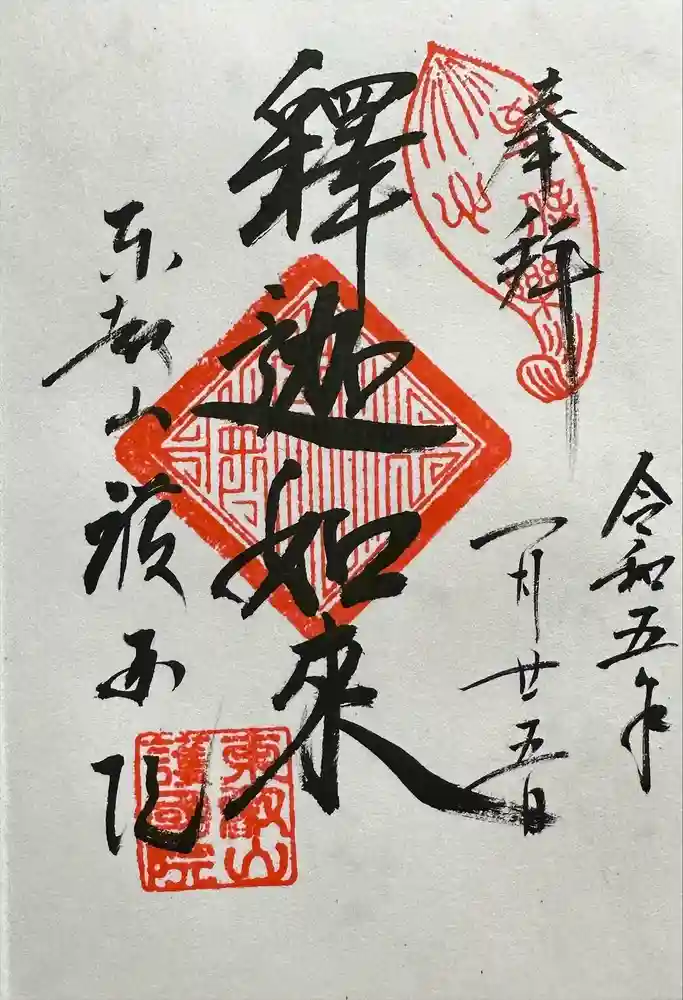 奉拝
令和五年
一月廿五日
釋迦如來
東叡山護國院
東叡山
護國院